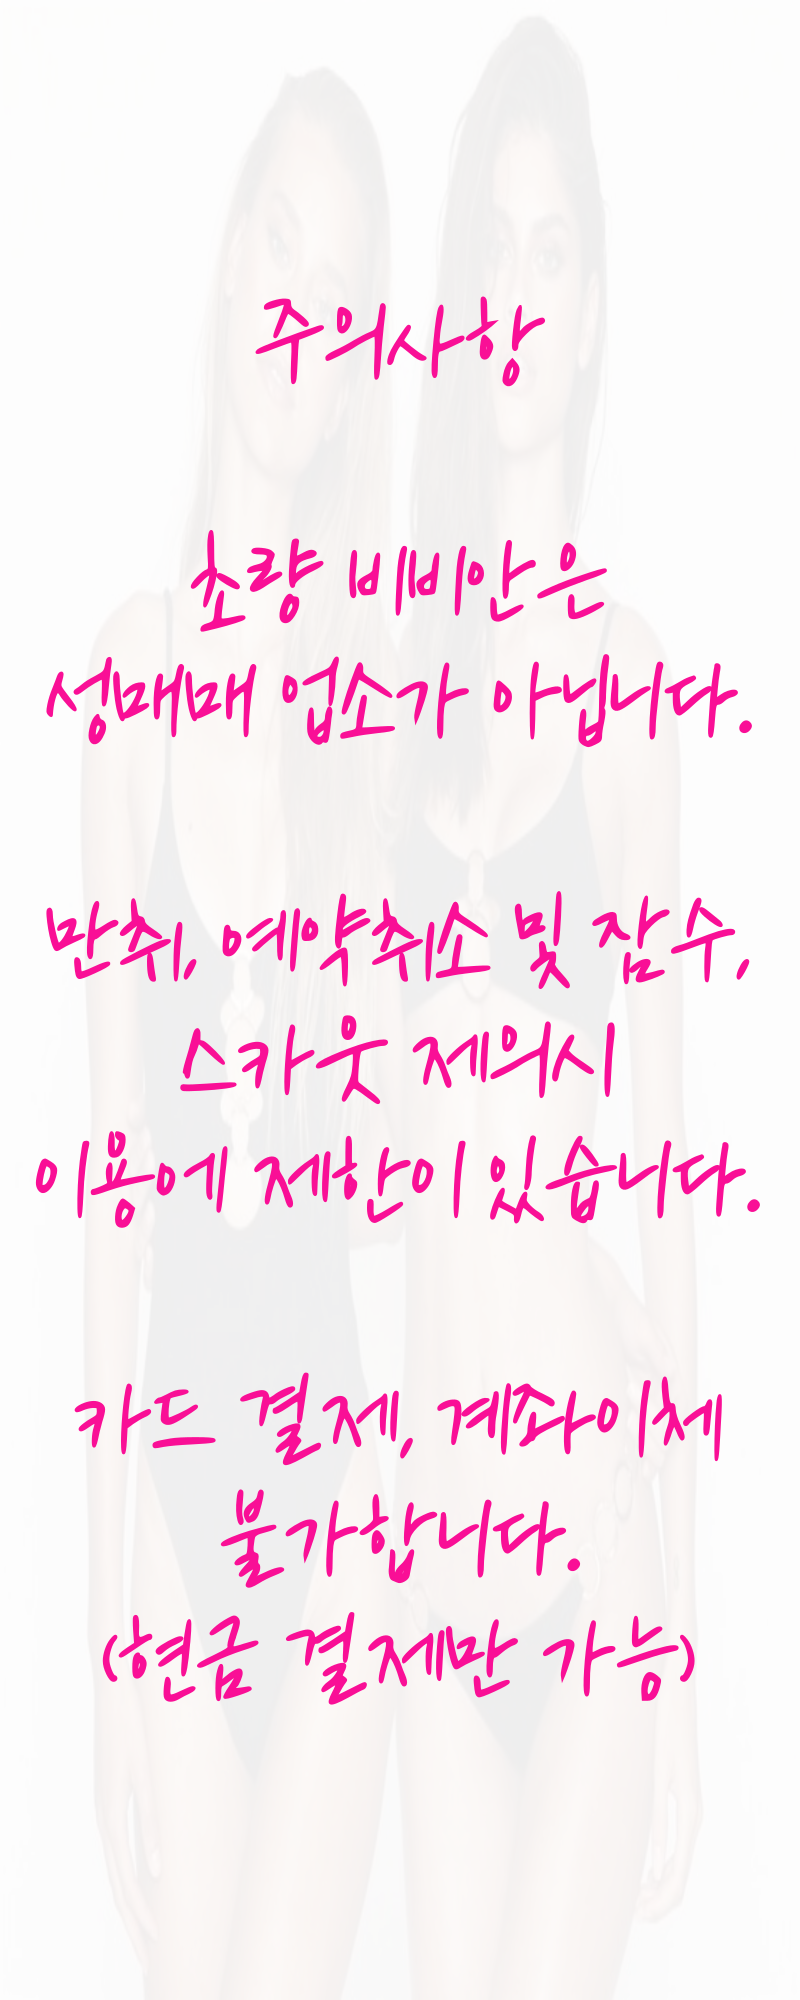 주의사항
초량 비비안은
성매매 업소가 아닙니다.
만취, 예약취소 및 잠수,
스카웃 제의시
이용에 제한이 있습니다.
카드 결제, 계좌이체
불가합니다.
(현금 결제만 가능)